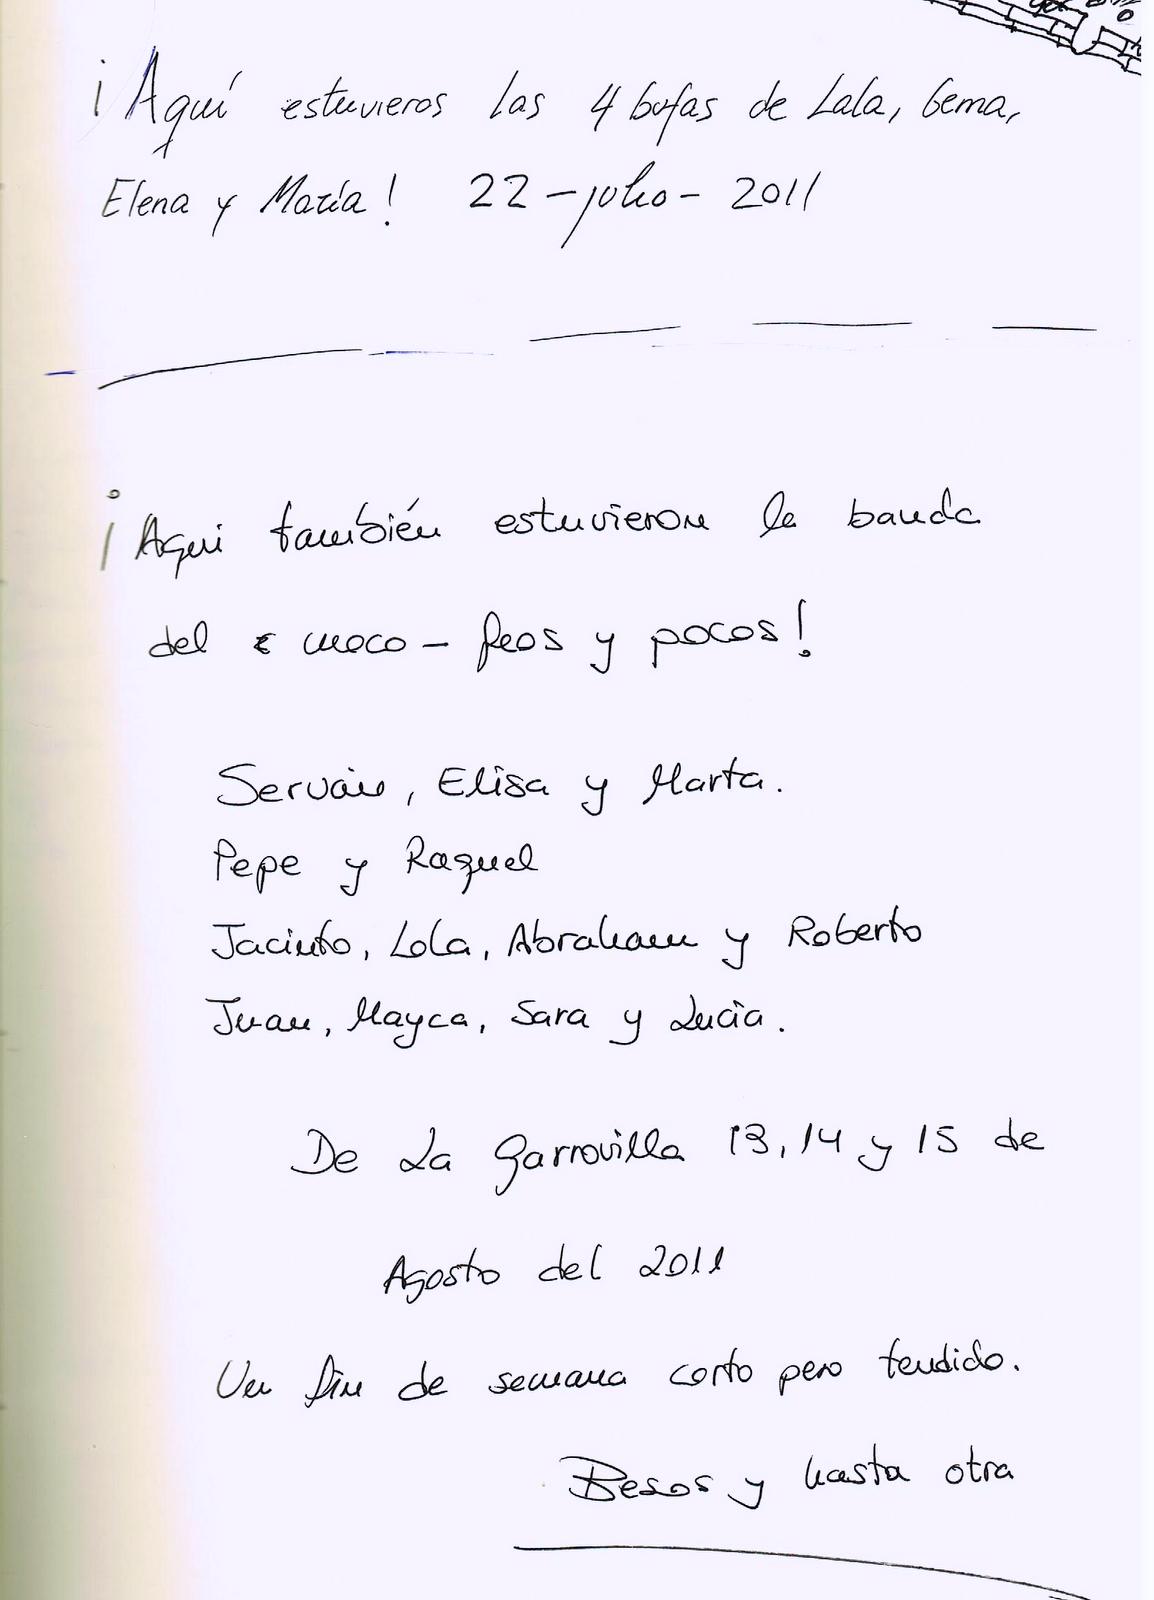 ¡Aquí estuvieros las 4 bufas de Lala, Gema,
Elena y María! 22-julio-2011
¡Aqui también estuvieron la banda
del moco - feos y pocos!
Servain, Elisa y Marta.
Pepe y Raquel
Jacinto, Lola, Abraham y Roberto
Juan, Mayca, Sara y Lucia.
De La Garrovilla 13, 14 y 15 de
Agosto del 2011
Un fin de semana corto pero tendido.
Besos y hasta otra